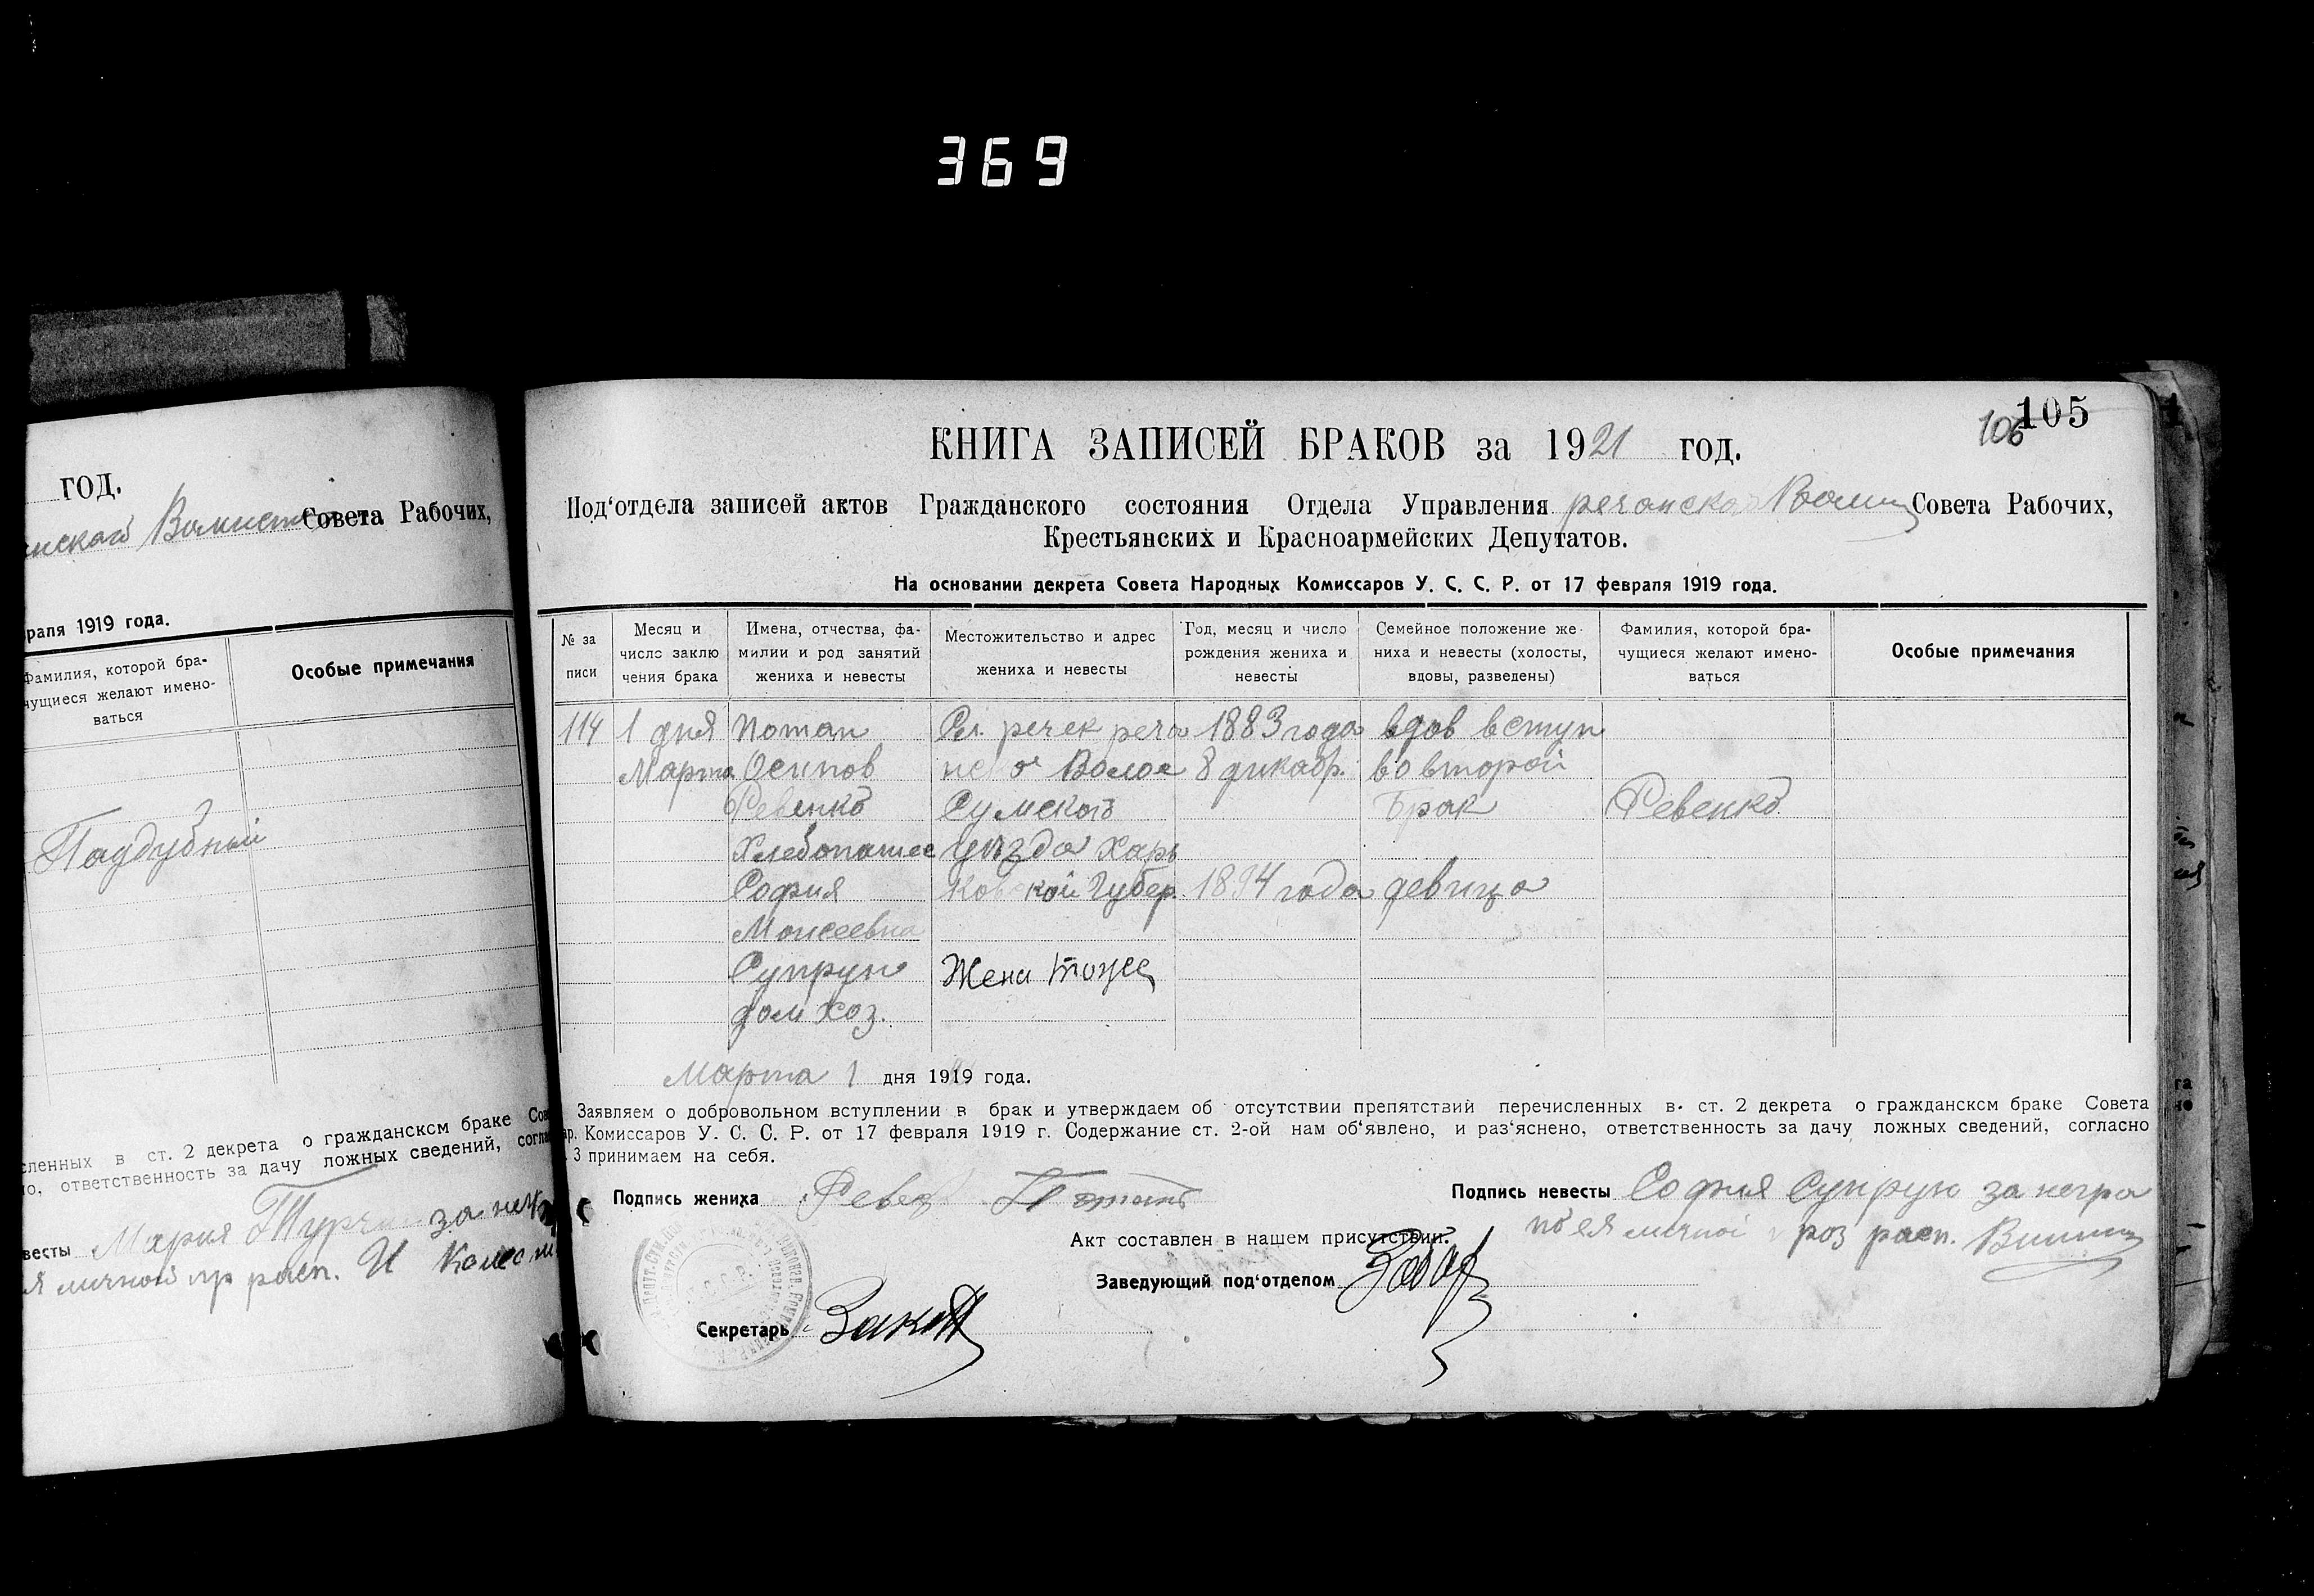 369
год.
нской Волисти Совета Рабочих,
раля 1919 года.
Фамилия, которой бра-
чущиеся желают имено-
ваться
Особые примечания
Паддубный
сленных в ст. 2 декрета о гражданском браке Сов
о, ответственность за дачу ложных сведений, согла
весты Мария за нех
я личной пр расп. И
105
106
КНИГА ЗАПИСЕЙ БРАКОВ за 1921 год.
Под‘отдела записей актов Гражданского состояния Отдела Управления речанской Волис Совета Рабочих,
Крестьянских и Красноармейских Депутатов.
На основании декрета Совета Народных Комиссаров У. С. С. Р. от 17 февраля 1919 года.
№ за
писи
Месяц и
число заклю
чения брака
Имена, отчества, фа-
милии и род занятий
жениха и невесты
Местожительство и адрес
жениха и невесты
Год, месяц и число
рождения жениха и
невесты
Семейное положение же-
ниха и невесты (холосты,
вдовы, разведены)
Фамилия, которой бра-
чущиеся желают имено-
ваться
Особые примечания
114
1 дня
Марта
Потап
Осипов
Ревенко
Хлебопашец
София
Моисеевна
Супрун
дом хоз.
Сл. речек реча
Волос
Сумского
уезда Харь
ковской Губер.
Жена тоже
1883 года
8 дикабр.
1894 года
вдов вступ
во второй
Брак
девица
Ревенко
Марта 1 дня 1919 года.
Заявляем о добровольном вступлении в брак и утверждаем об отсутствии препятствий перечисленных в ст. 2 декрета о гражданском браке Совета
ар. Комиссаров У. С. С. Р. от 17 февраля 1919 г. Содержание ст. 2-ой нам об‘явлено, и раз‘яснено, ответственность за дачу ложных сведений, согласно
. 3 принимаем на себя.
Подпись жениха Потапъ
Подпись невесты София Супрун за негра
по ея личной расп.
Акт составлен в нашем присутствии:
Заведующий под‘отделом
Секретарь